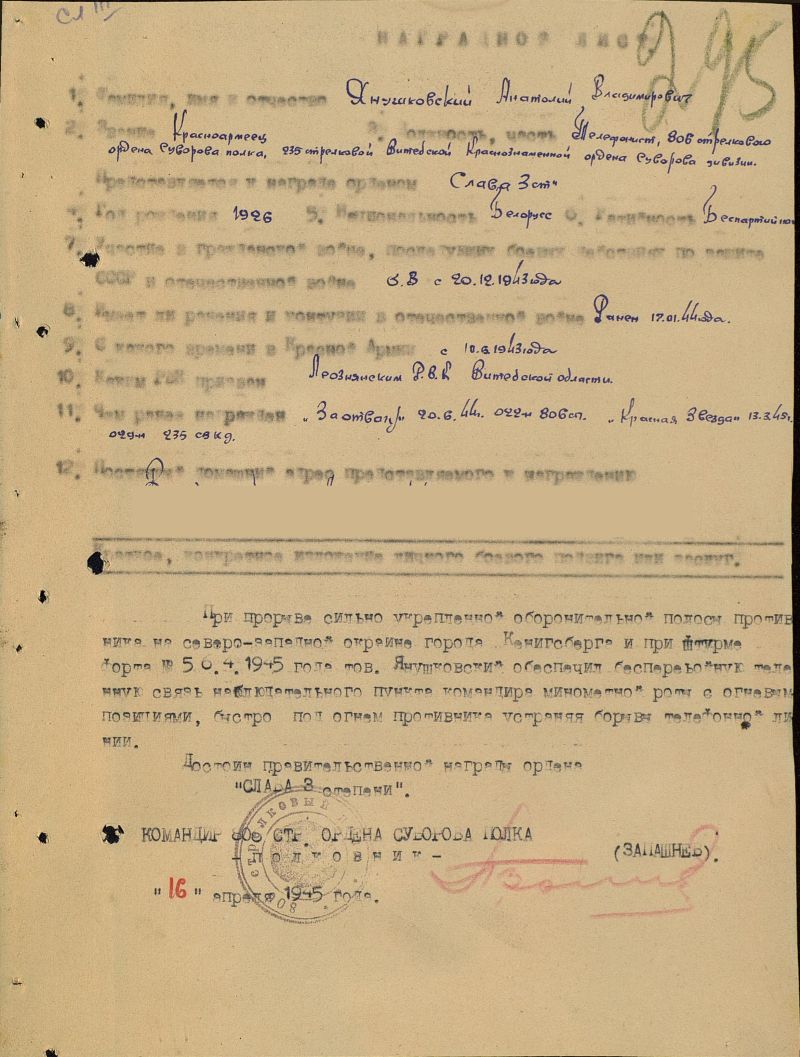 Сл III
295
НАГРАДНОЙ ЛИСТ.
1. Фамилия, имя и отчество Янушковский Анатолий Владимирович
2. Звание Красноармеец 3. Должность, часть Телефонист, 806 стрелкового
ордена Суворова полка, 235 стрелковой Витебской Краснознаменной ордена Суворова дивизии.
Представляется к награде орденом Слава 3 ст"
4. Год рождения 1926 5. Национальность Белорусс 6. Партийность Беспартийной
7. Участие в гражданской войне, последующих боевых действиях по защите
СССР и отечественной войне О.В с 20.12.1943 года
8. Имеет ли ранения и контузии в отечественной войне Ранен 17.01.44 года.
9. С какого времени в Красной Армии с 10.6.1943 года
10. Каким РВК призван Леознянским Р.В.К Витебской области.
11. Чем ранее награжден „За отвагу" 20.6.44г. 022-н 806 сп. „Красная Звезда" 13.3.45г.
029-н 235 сд.
12. Постоянный домашний адрес представляемого к награждению
Краткое, конкретное изложение личного боевого подвига или заслуг.
При прорыве сильно укрепленной оборонительной полосы против
ника на северо-западной окраине города Кенигсберга и при штурме
форта № 5 6.4.1945 года тов. Янушковский обеспечил беспереьойную теле
нную связь наблюдательного пункта командира минометной роты с огневым
позициями, быстро под огнем противника устраняя борывы телефонной ли
нии.
Достоин правительственной награды ордена
"СЛАВА 3 степени".
КОМАНДИР 806 СТР. ОРДЕНА СУВОРОВА ПОЛКА
-Полковник- (ЗАПАШНЕВ).
"16" апреля 1945 года.